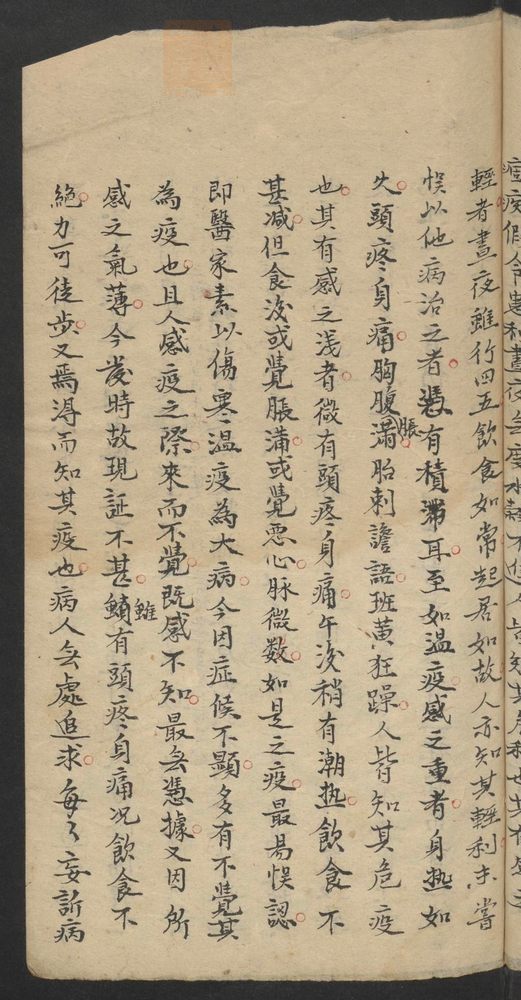 輕者晝夜雖行四五飲食如常起居如故人亦知其輕利未嘗
悞以他病治之者憑有積滯耳至如温疫感之重者身热如
火頭疼身痛胸腹脹滿胎刺譫語班黃狂躁人皆知其危疫
也其有感之浅者微有頭疼身痛午後稍有潮热飲食不
甚减但食後或覺脹滿或覺悪心脉微数如是之疫最易悞認
即醫家素以傷寒温疫為大病今因症候不顯多有不覺其
為疫也且人感疫之際來而不覺既感不知最無憑據又因所
感之氣薄今發時故現証不甚雖有頭疼身痛况飲食不
絶力可徒步又焉得而知其疫也病人無處追求每々妄訴病